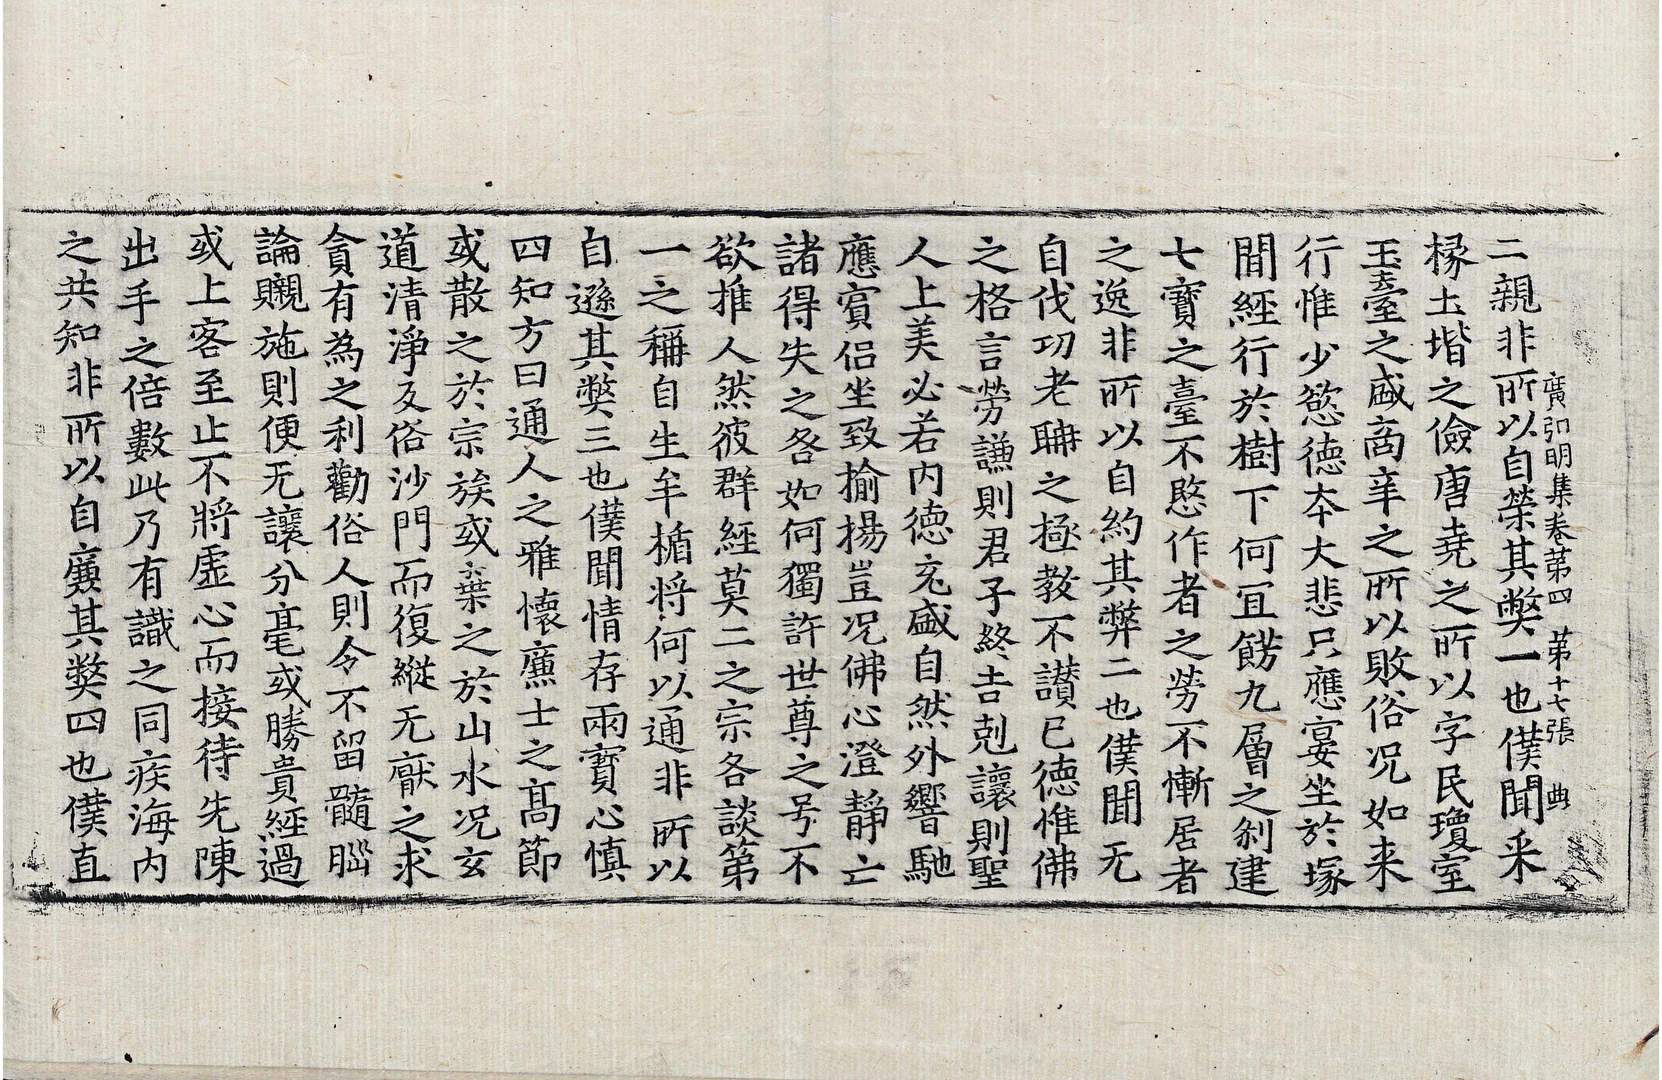 廣弘明集卷第四　第十七張　典
二親非所以自榮其弊一也僕聞采
椽土堦之儉唐堯之所以字民瓊室
玉臺之盛商辛之所以敗俗况如来
行惟少慾德夲大悲只應宴坐於塚
間經行於樹下何冝餝九層之刹建
七寶之臺不愍作者之勞不慚居者
之逸非所以自約其弊二也僕聞无
自伐㓛老聃之極教不讃已德惟佛
之格言勞謙則君子終吉剋讓則聖
人上美必若内德充盛自然外響馳
應賔侶坐致揄揚豈况佛心澄靜亡
諸得失之咎如何獨許世尊之号不
欲推人然彼群經莫二之宗各談第
一之稱自生牟楯將何以通非所以
自遜其弊三也僕聞情存兩寶心慎
四知方曰通人之雅懷廉士之髙節
或散之於宗族或棄之於山水况玄
道清淨反俗沙門而復縱无猒之求
貪有為之利勸俗人則令不留髓腦
論䞋施則便无讓分毫或勝貴經過
或上客至止不將虛心而接待先陳
出手之倍數此乃有識之同疾海内
之共知非所以自廉其弊四也僕直